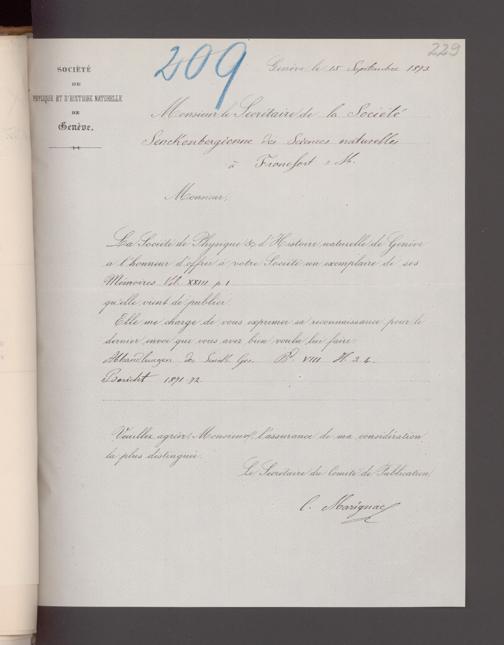 209
229
SOCIÉTÉ
DE
PHYSIQUE ET D'HISTOIRE NATURELLE
DE
Genève.
Genève le 15 Septembre 1873
Monsieur le Secrétaire de la Société
Senckenbergienne des Sciences naturelles
à Francfort s M.
Monsieur,
La Société de Physique & d'Histoire naturelle de Genève
a l'honneur d'offrir à votre Société un exemplaire de ses
Mémoires Vol. XXIII p. 1
qu'elle vient de publier.
Elle me charge de vous exprimer sa reconnaissance pour le
dernier envoi que vous avez bien voulu lui faire
Abhandlungen der Senck. Ges. Bd VIII H. 3 4.
Bericht 1871 72
Veuillez agréer, Monsieur, l'assurance de ma considération
la plus distinguée.
Le Secrétaire du Comité de Publication
C. Marignac